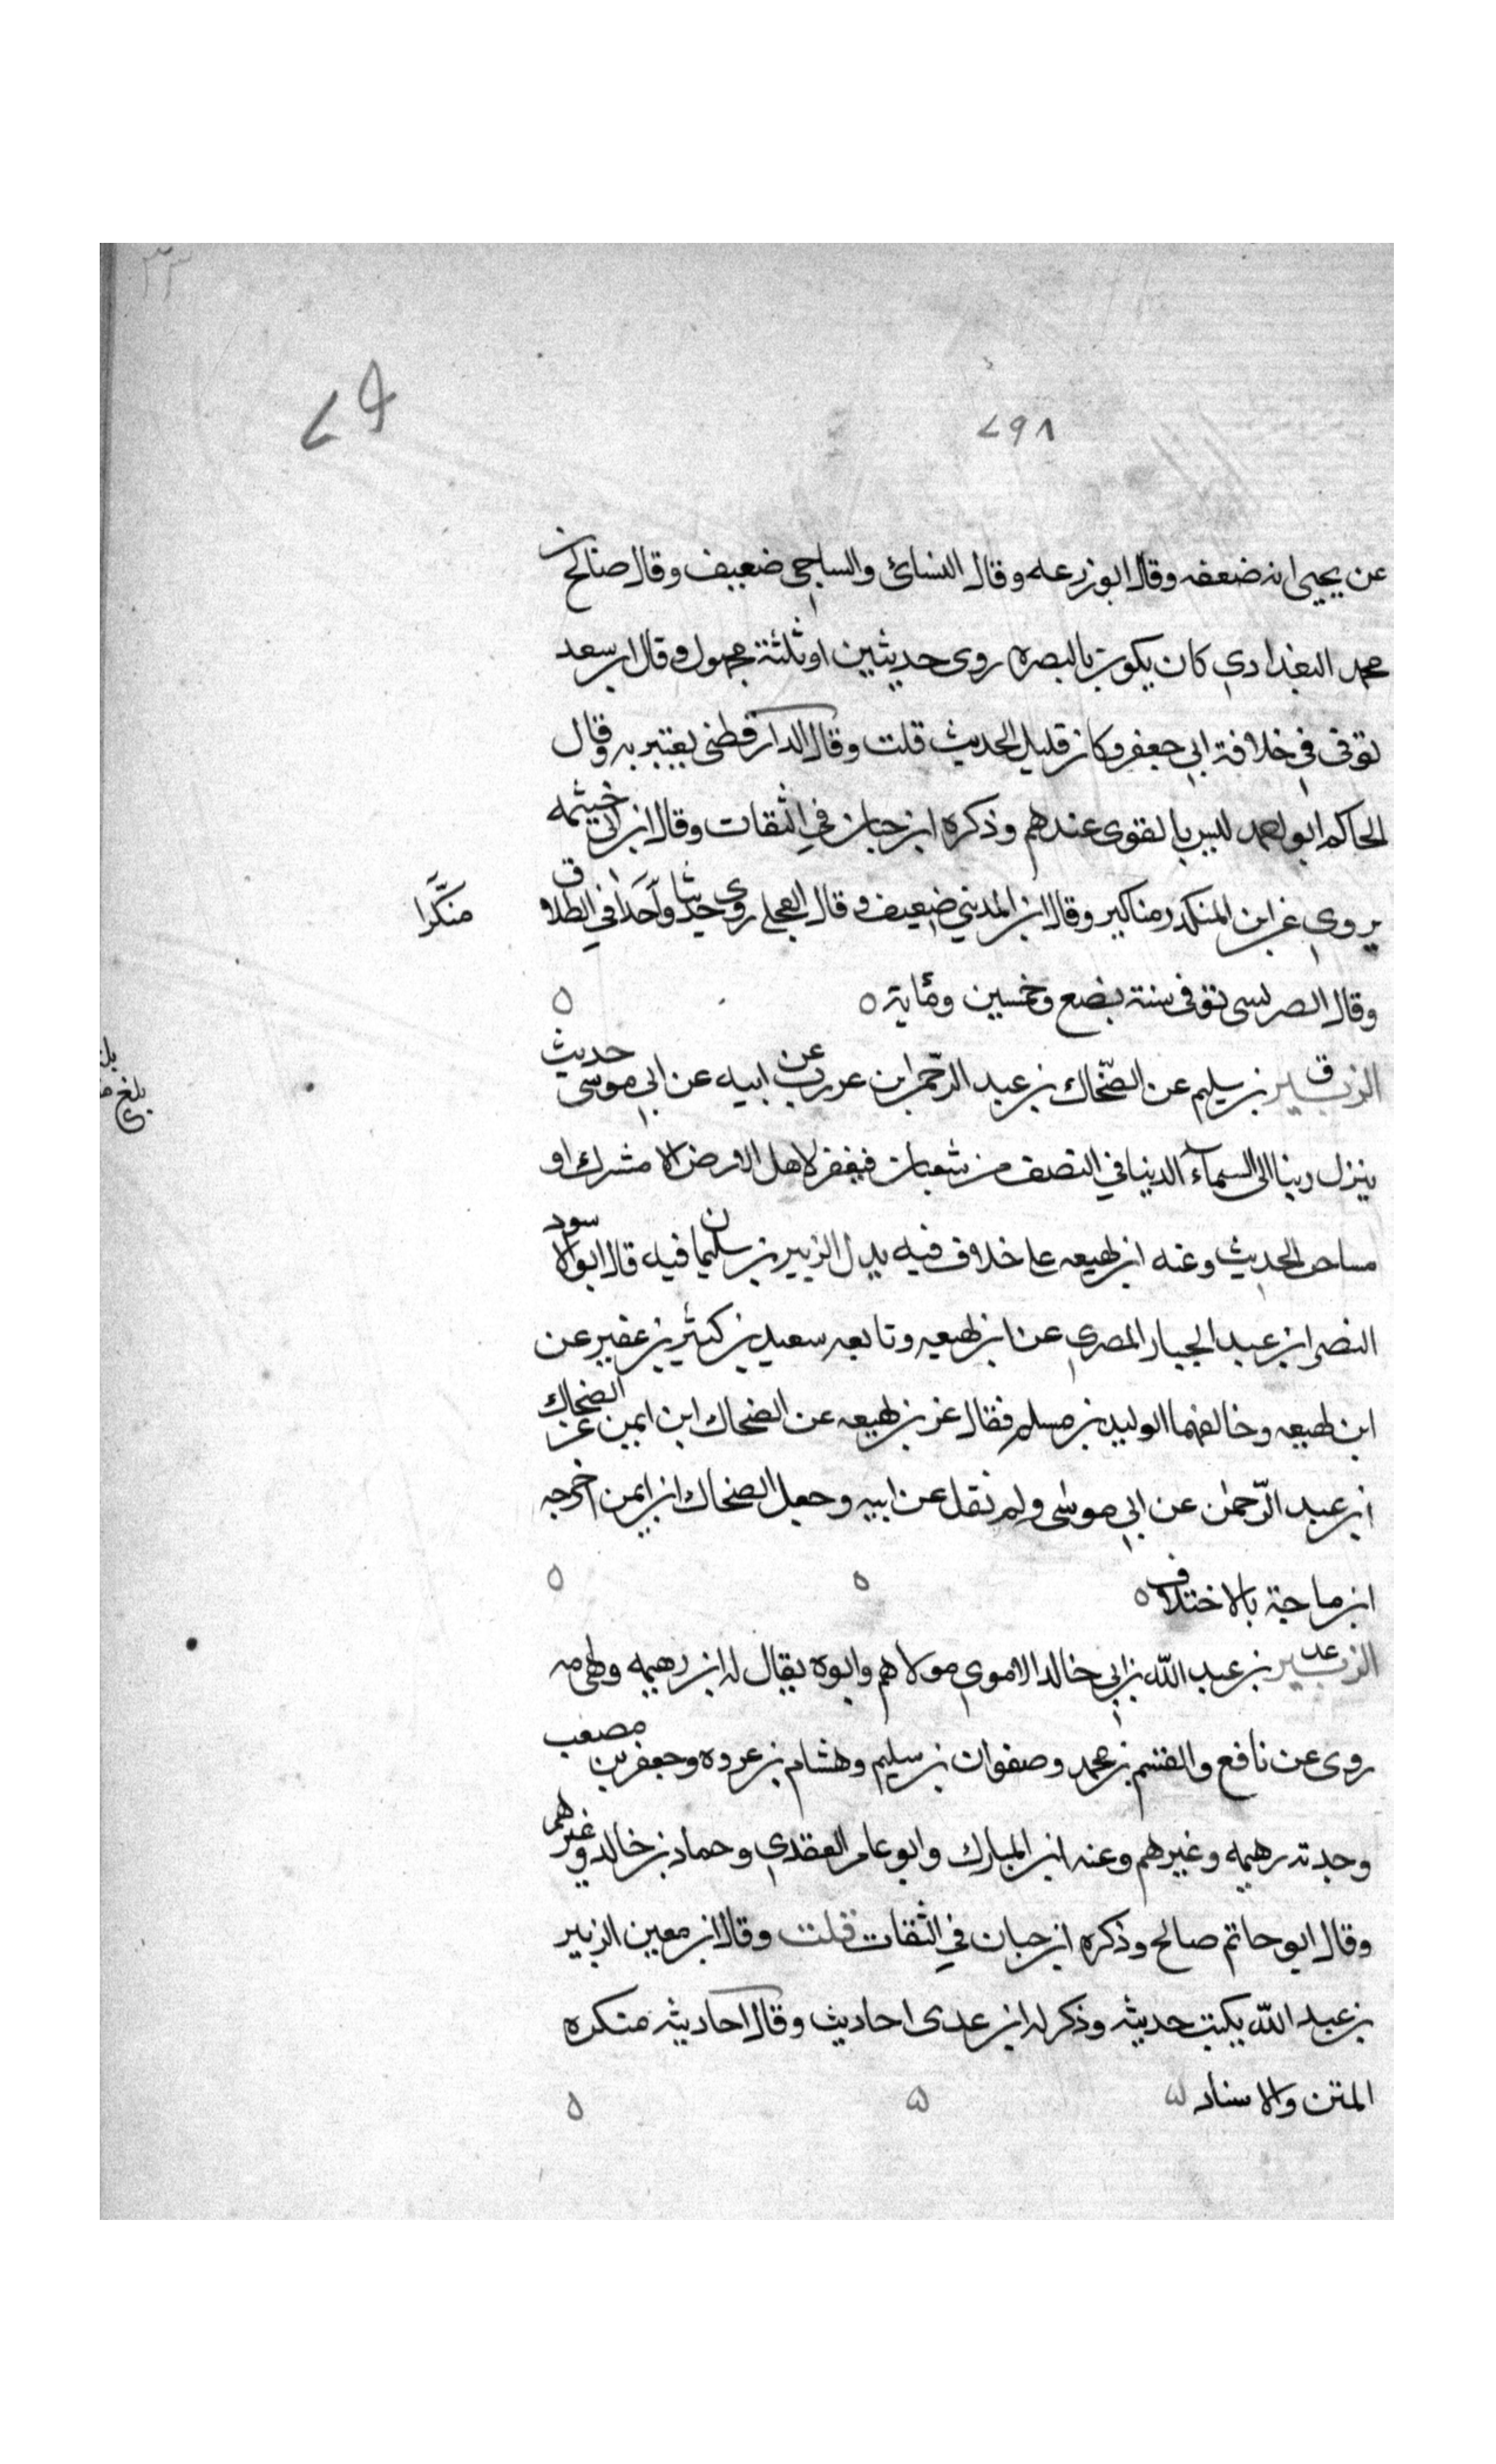 ٢٩٨
عن يحيى انه ضعفه وقال ابو زرعه وقال النسائ والساجي ضعيف وقال صالح بن
محمد البغدادي كان يكون بالبصره روى حديثين او ثلثة مجهول وقال ابن سعد
توفى في خلافة ابي جعفر وكان قليل الحديث قلت وقال الدارقطنى يعتبر به وقال
الحاكم ابو احمد ليس بالقوى عندهم وذكره ابن حبان في الثقات وقال ابن ابي خيثمه
يروي عن ابن المنكدر مناكير وقال ابن المديني ضعيف وقال العجلي روى حديثا واحدا في الطلاق منكرا
وقال الصريفينى توفى سنة بضع وخمسين ومائة ٥
الزبير بن سليم عن الضحاك بن عبد الرحمن ابن عرزب عن ابيه عن ابي موسى حديث
ينزل ربنا الى السمآء الدنيا في النصف من شعبان فيغفر لاهل الارض الا مشرك او
مشاحن الحديث وعنه ابن لهيعه على خلاف فيه بدل الزبير بن سليمان فيه قال ابو الاسود
النضر ابن عبد الجبار المصري عن ابن لهيعه وتابعه سعيد بن كثير بن عفير عن
ابن لهيعه وخالفهما الوليد بن مسلم فقال عن بن لهيعه عن الضحاك ابن ايمن عن الضحاك
ابن عبد الرحمن عن ابي موسى ولم يقل عن ابيه وجعل الضحاك ابن ايمن اخرجه
ابن ماجة بالاختلاف ٥
الزبير بن عبد الله بن ابي خالد الاموي مولاهم وابوه يقال له ابن رهيمه وهي امه
روى عن نافع والقسم بن محمد وصفوان بن سليم وهشام بن عروه وجعفر بن مصعب
وجدته رهيمه وغيرهم وعنه ابن المبارك وابو عامر العقدي وحماد بن خالد وغيرهم
وقال ابو حاتم صالح وذكره ابن حبان في الثقات قلت وقال ابن معين الزبير
بن عبد الله يكتب حديثه وذكر له ابن عدى احاديث وقال احاديثه منكره
المتن والاسناد ٥